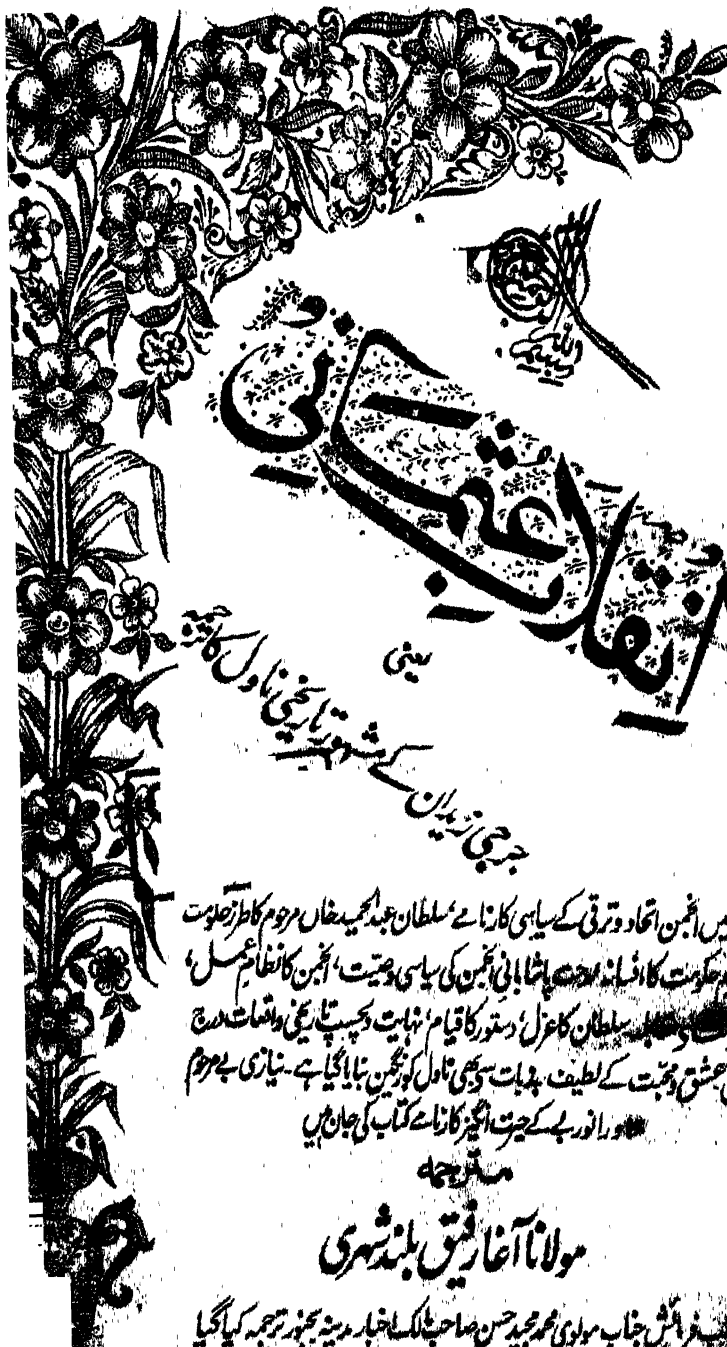 بسم اللہ
انقلاب عثمانی
یعنی
جرجی زیدان کے مشہور تاریخی ناول کا ترجمہ
میں انجمن اتحاد و ترقی کے سیاہی کارنامے، سلطان عبدالحمید خاں مرحوم کا طرز حکومت
حکومت کا افسانہ مدحت پاشا بانی انجمن کی سیاسی وصیت، انجمن کا نظام عمل،
سلطان کا عزل، دستور کا قیام، نہایت دلچسپ تاریخی واقعات درج
عشق و محبت کے لطیف جذبات سے بھی ناول کو رنگین بنایا گیا ہے۔ نیازی بے مرحوم
اور انور بے کے حیرت انگیز کارنامے کتاب کی جان ہیں
مترجمہ
مولانا آغا رفیق بلند شہری
فرمائش جناب مولوی محمد مجید حسن صاحب مالک اخبار مدینہ بجنور ترجمہ کیا گیا